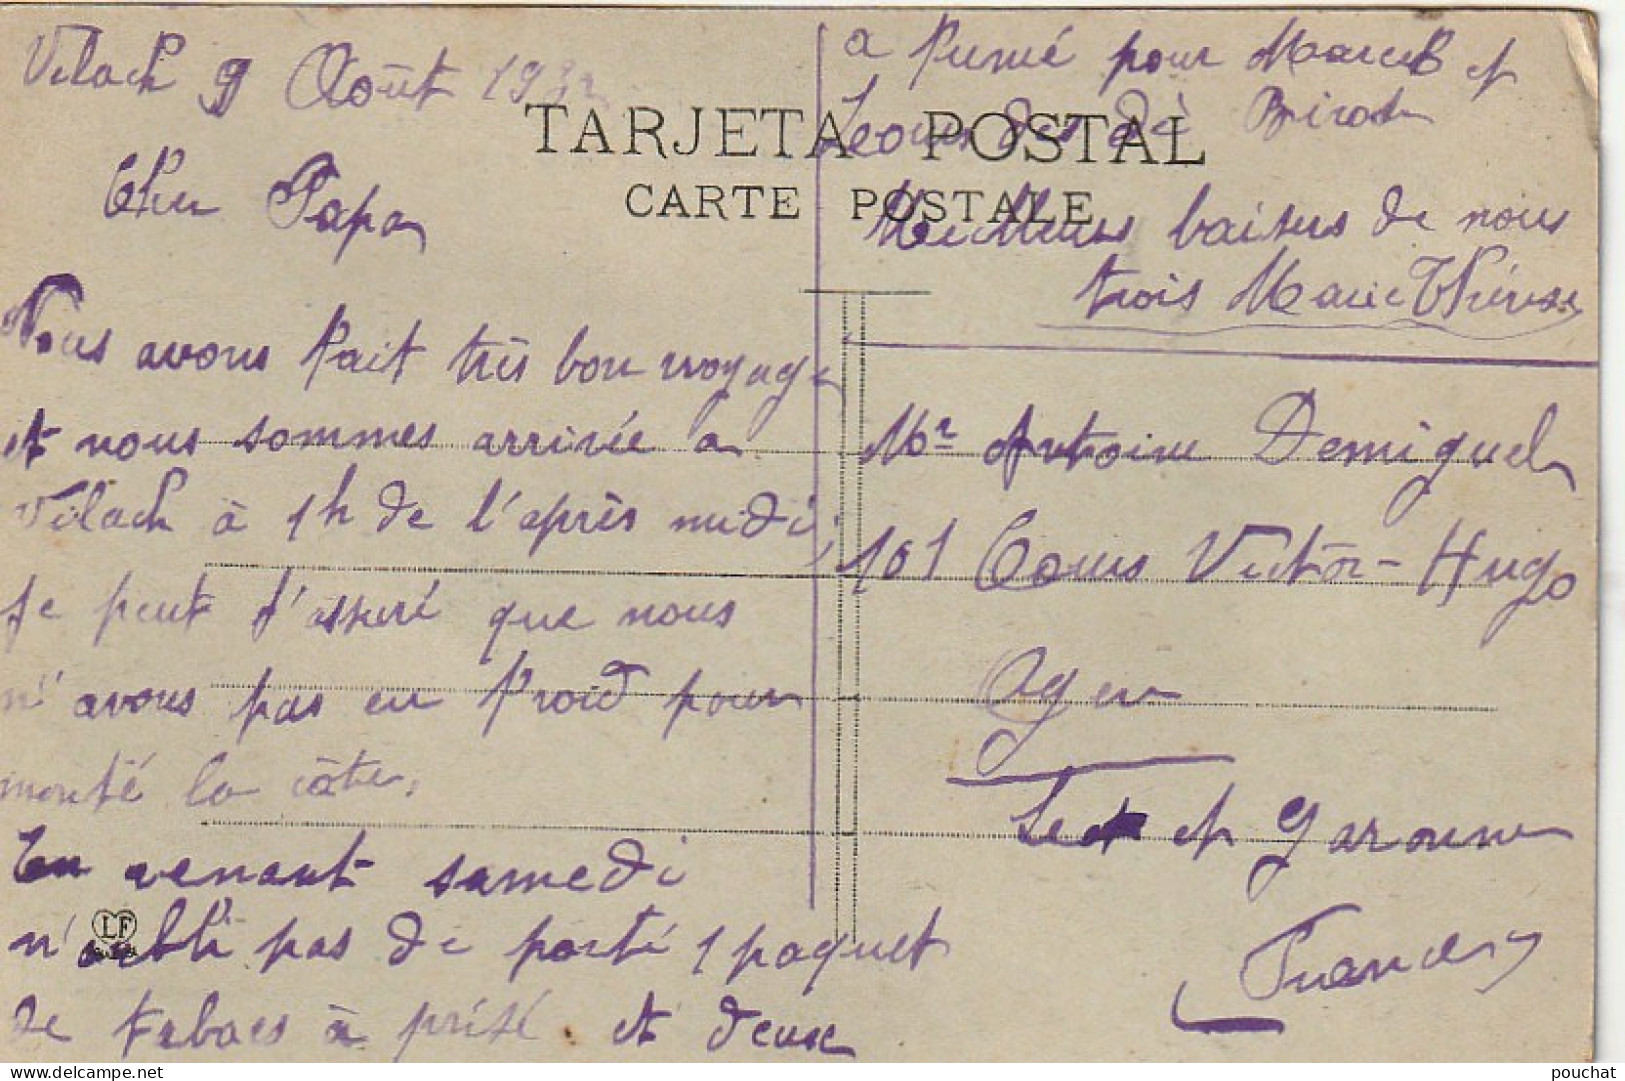 Vilach 9 Août 193
TARJETA POSTAL
CARTE POSTALE
Cher Papa
Nous avons fait très bon voyage
et nous sommes arrivée a
Vilach à 1h de l'après midi,
Je peut t'assuré que nous
n'avons pas eu froid pour
monté la côte.
En venant samedi
n'oubli pas de porté 1 paquet
de tabacs à prisé et deux
a fumé pour Marcel et
Leon de Birot
Meilleurs baisers de nous
trois Marie Thérèse
Mr Antoine Demiguel
101 Cours Victor-Hugo
Agen
Lot et Garonne
France
LF
pouchat